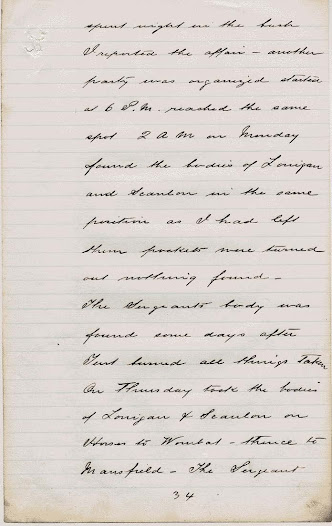 spent night in the bush
I reported the affair - another
party was organized started
at 6 P.M. reached the same
spot 2 A M on Monday
found the bodies of Lonigan
and Scanlon in the same
position as I had left
them pockets were turned
out nothing found -
The Sergeants body was
found some days after
Tent burned all things taken
On Thursday took the bodies
of Lonigan & Scanlon on
Horses to Wombat - thence to
Mansfield - The Sergeant
34